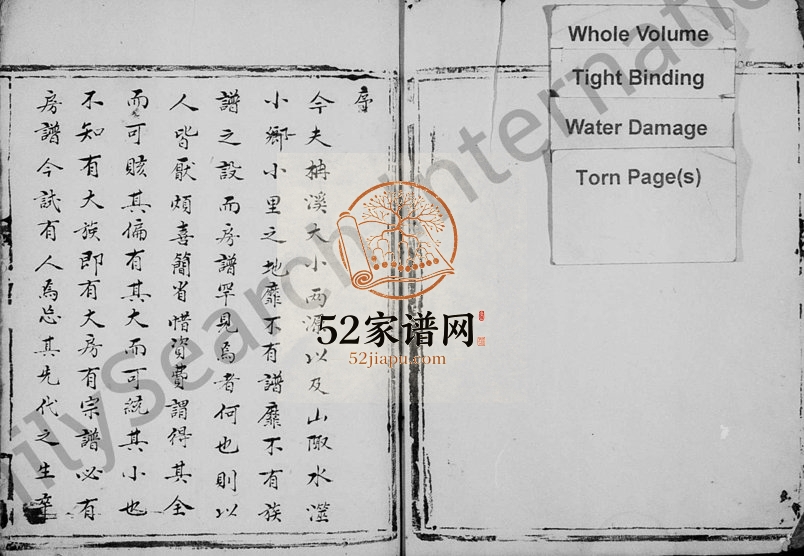 Whole Volume
Tight Binding
Water Damage
Torn Page(s)
序
今夫梅溪大小兩源以及山陬水澨
小鄉小里之地靡不有譜靡不有族
譜之設而房譜罕見焉者何也則以
人皆厭煩喜簡省惜資費謂得其全
而可賅其偏有其大而可統其小也
不知有大族即有大房有宗譜必有
房譜今試有人焉忘其先代之生卒
52家谱网
52jiapu.com
ilysearch International